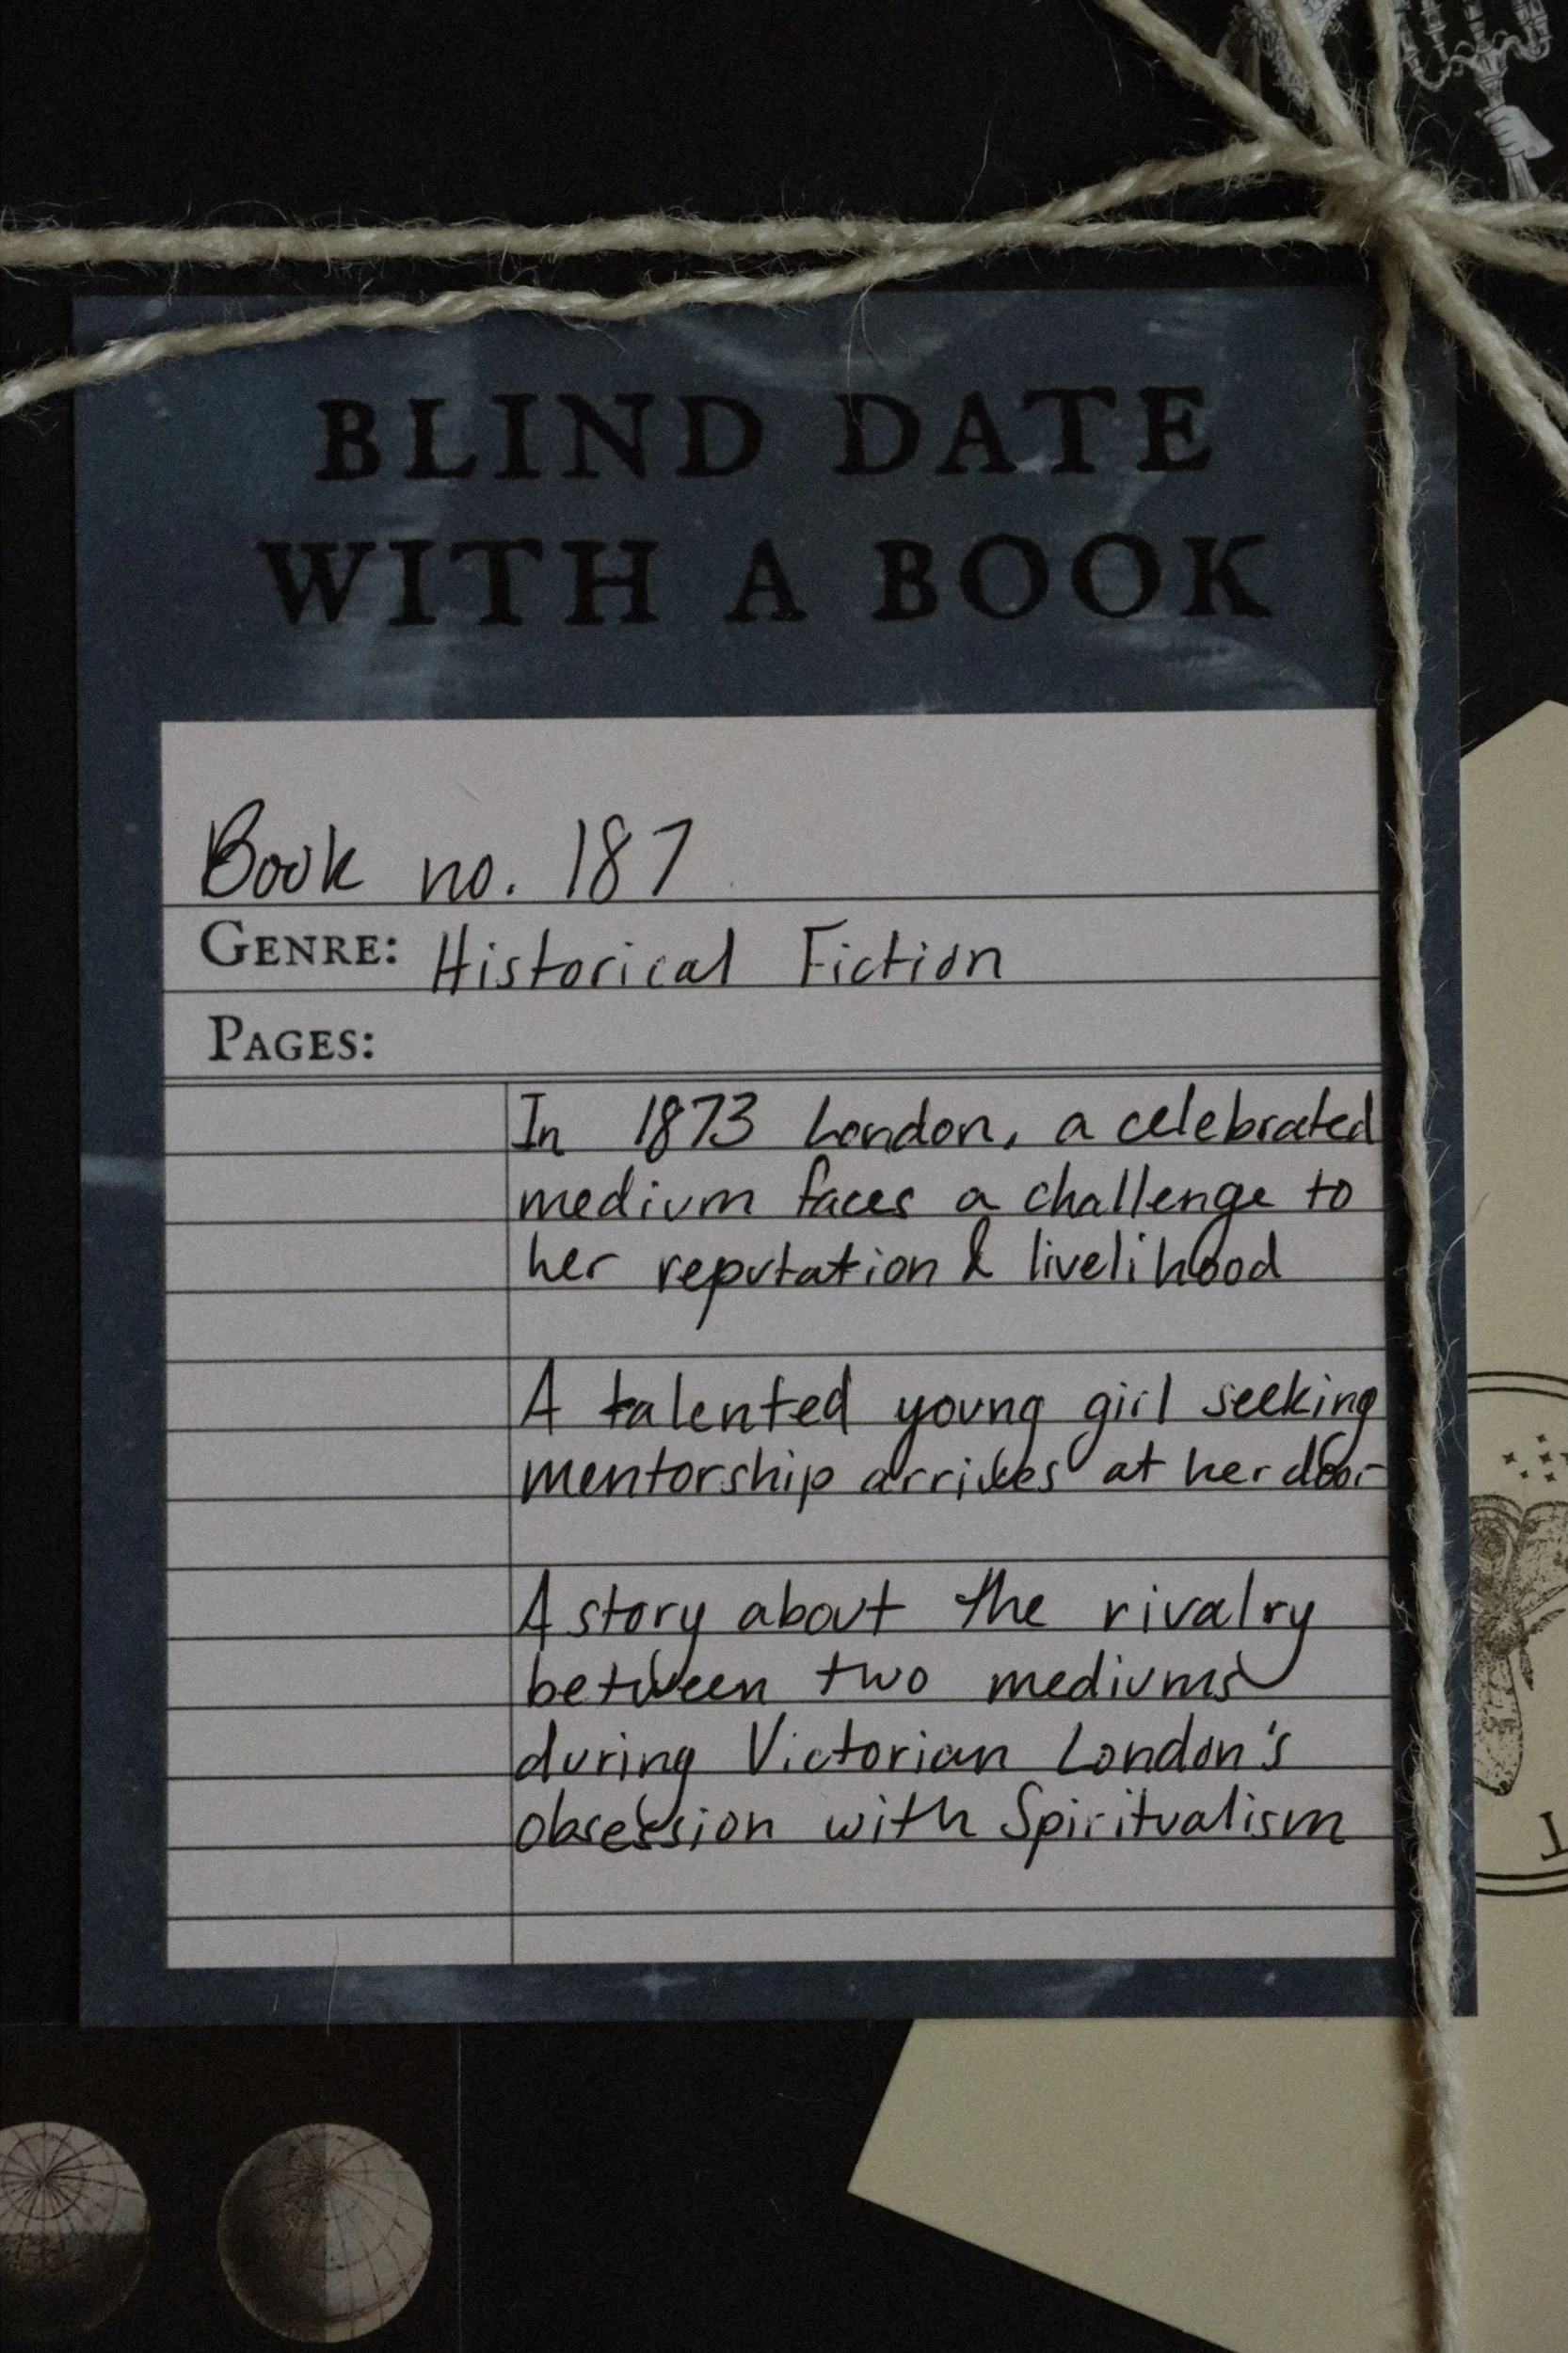 BLIND DATE
WITH A BOOK
Book no. 187
GENRE: Historical Fiction
PAGES:
In 1873 London, a celebrated
medium faces a challenge to
her reputation & livelihood
A talented young girl seeking
mentorship arrives at her door
A story about the rivalry
between two mediums
during Victorian London's
obsession with Spiritualism